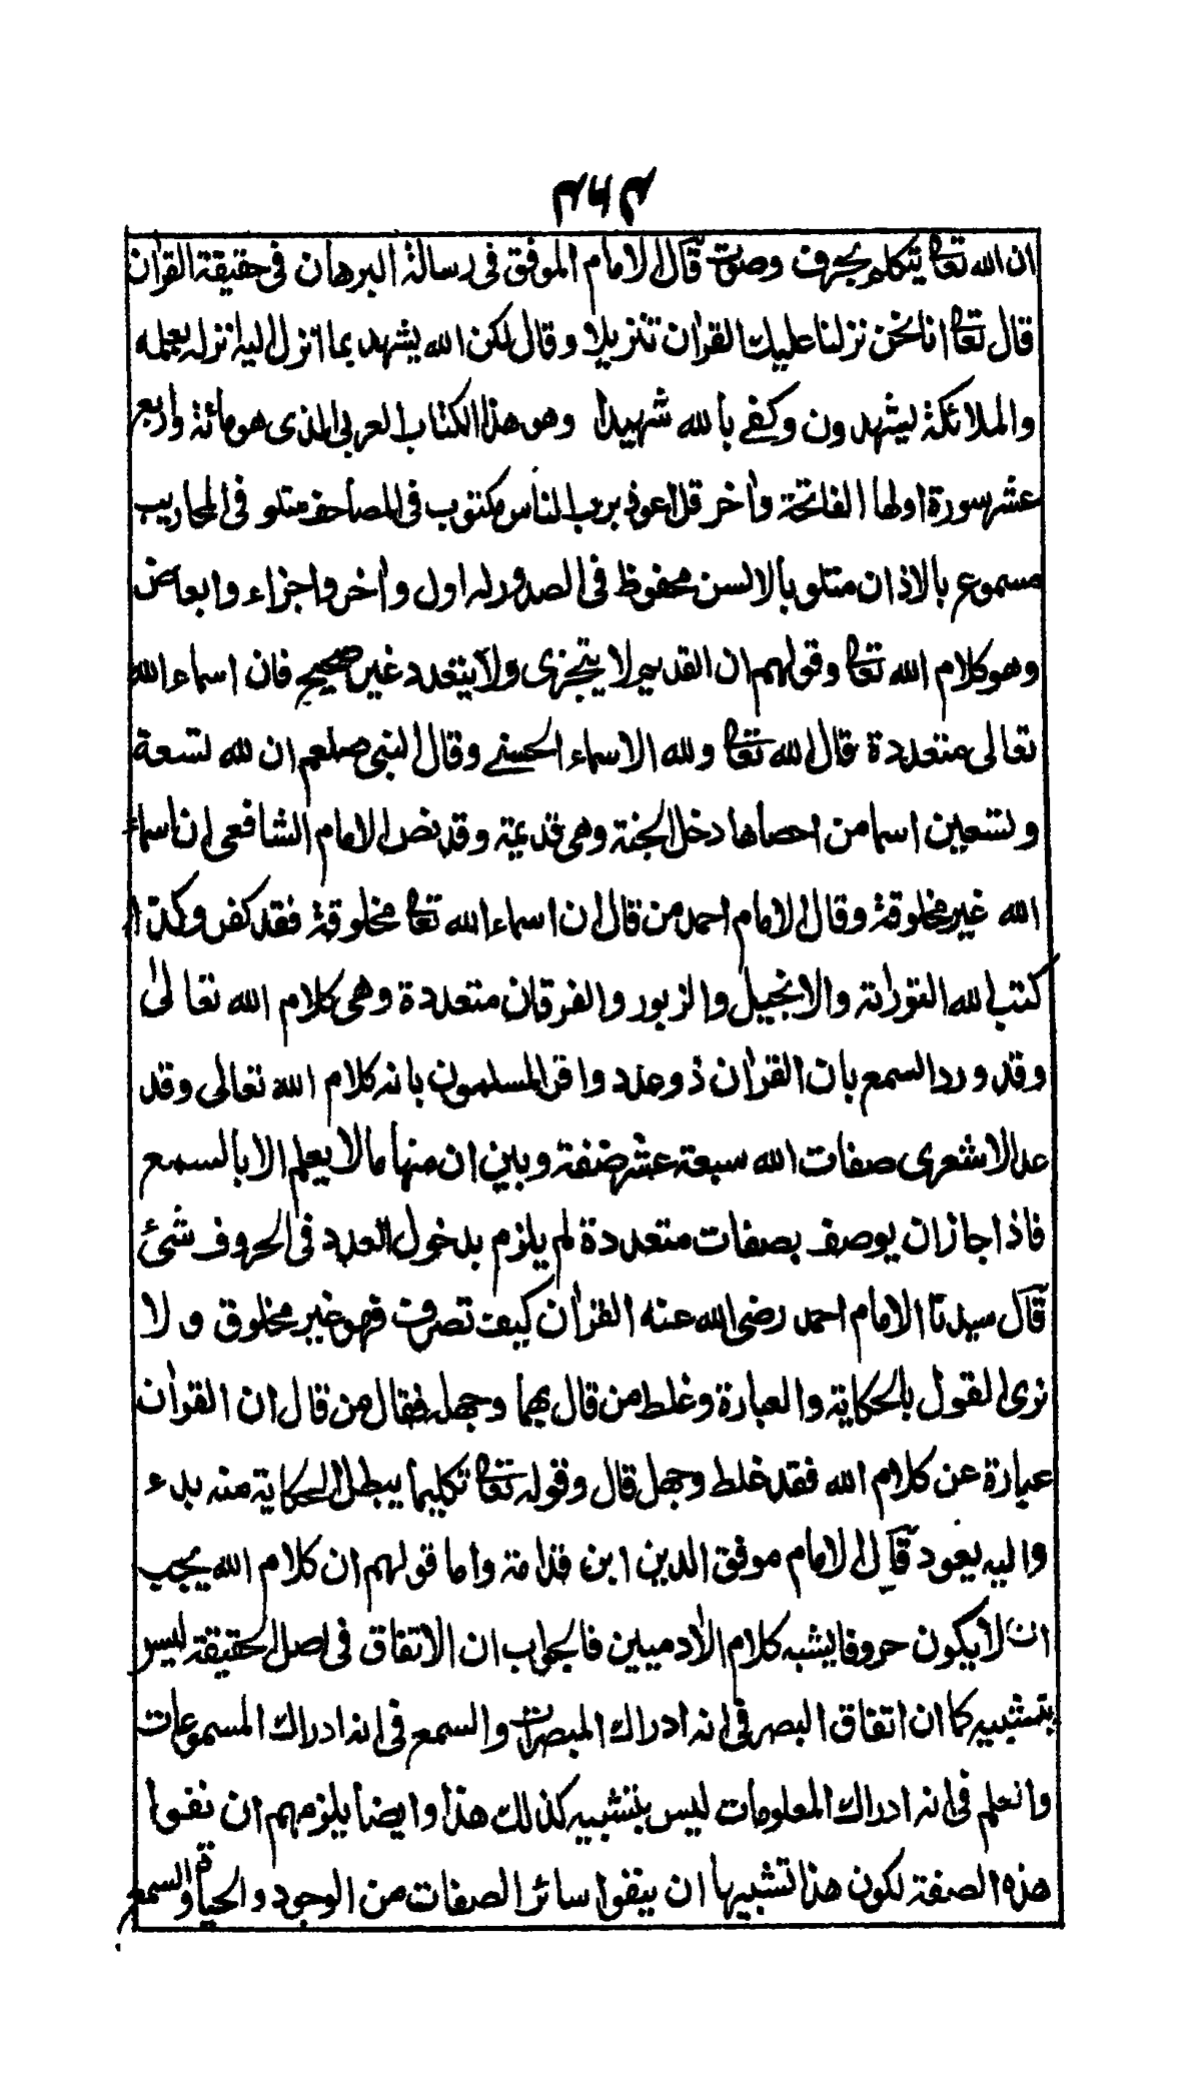 ٣٦٣
ان الله تعا يتكلم بحرف وصوت قال الامام الموفق فى رسالة البرهان فى حقيقة القرآن
قال تعا انا نحن نزلنا عليك القرآن تنزيلا وقال لكن الله يشهد بما انزل اليك انزله بعلمه
والملائكة يشهدون وكفى بالله شهيدا وهو هذا الكتاب العربى الذى هو مائة واربع
عشر سورة اولها الفاتحة وآخر قل اعوذ برب الناس مكتوب فى المصاحف متلو فى المحاريب
مسموع بالاذان متلو بالالسن محفوظ فى الصدور له اول وآخر واجزاء وابعاض
وهو كلام الله تعا وقولهم ان القديم لا يتجزى ولا يتعدد غير صحيح فان اسماء الله
تعالى متعددة قال الله تعا ولله الاسماء الحسنى وقال النبى صلعم ان لله تسعة
وتسعين اسما من احصاها دخل الجنة وهى قديمة وقد نص الامام الشافعى ان اسماء
الله غير مخلوقة وقال الامام احمد من قال ان اسماء الله تعا مخلوقة فقد كفر وكذا
كتب الله التوراة والانجيل والزبور والفرقان متعددة وهى كلام الله تعالى
وقد ورد السمع بان القرآن ذو عدد واقر المسلمون بانه كلام الله تعالى وقد
عد الاشعرى صفات الله سبعة عشر صفة وبين ان منها ما لا يعلم الا بالسمع
فاذا جاز ان يوصف بصفات متعددة لم يلزم بدخول العدد فى الحروف شئ
قال سيدنا الامام احمد رضى الله عنه القرآن كيف تصرف فهو غير مخلوق ولا
نرى القول بالحكاية والعبارة وغلط من قال بهما وجهله فقال من قال ان القرآن
عبارة عن كلام الله فقد غلط وجهل قال وقوله تعا تكليما يبطل الحكاية منه بدء
واليه يعود قال الامام موفق الدين ابن قدامة واما قولهم ان كلام الله يجب
ان لا يكون حروفا يشبه كلام الآدميين فالجواب ان الاتفاق فى اصل الحقيقة ليس
بتشبيه كما ان اتفاق البصر فى انه ادراك المبصرات والسمع فى انه ادراك المسموعات
والعلم فى انه ادراك المعلومات ليس بتشبيه كذلك هذا وايضا يلزمهم ان نفوا
هذه الصفة لكون هذا تشبيها ان ينفوا سائر الصفات من الوجود والحياة والسمع